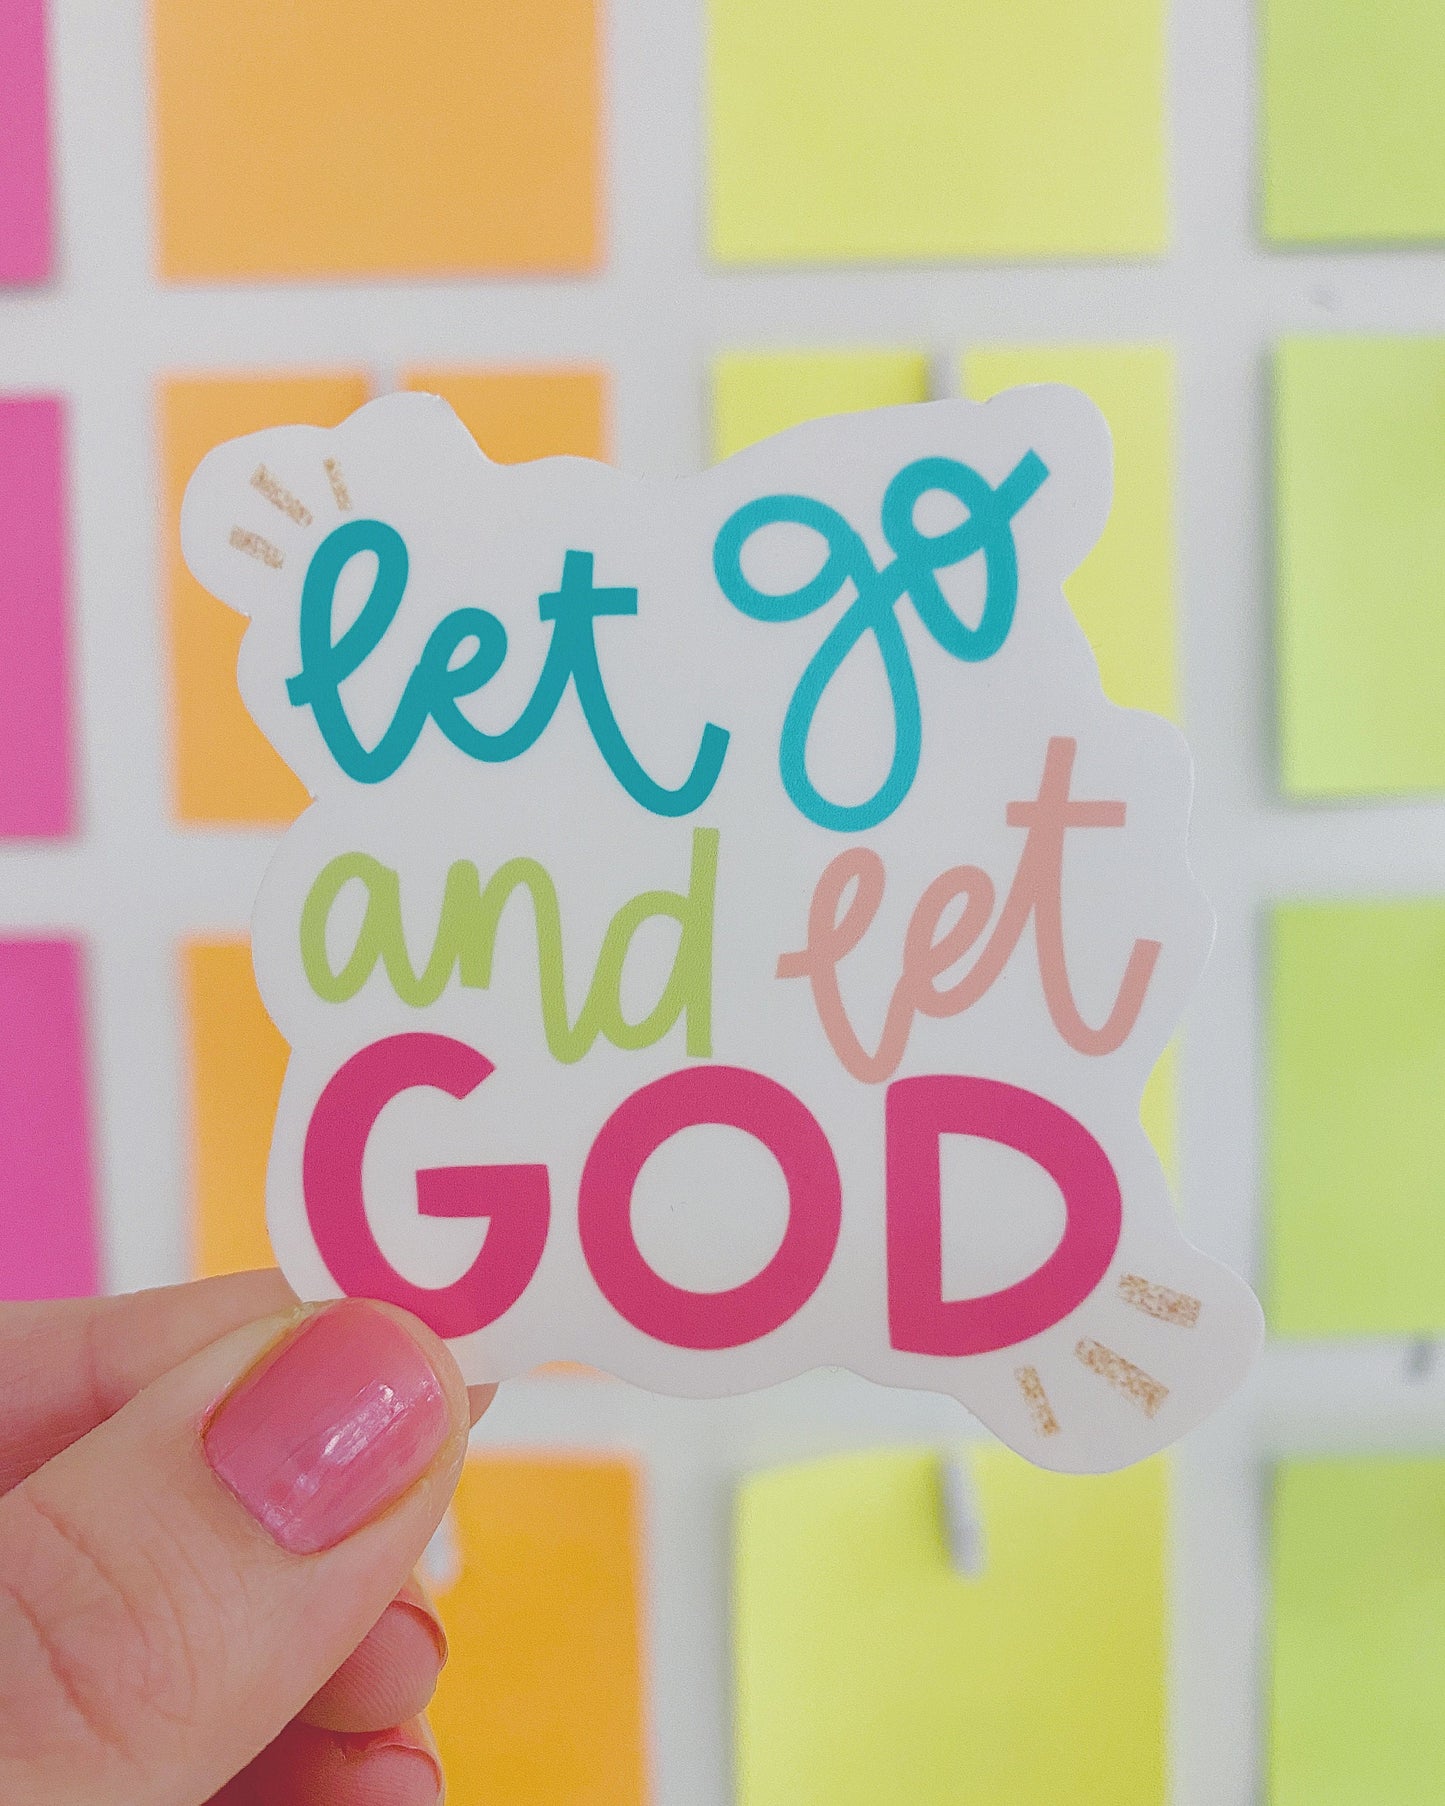 let go
and let
GOD